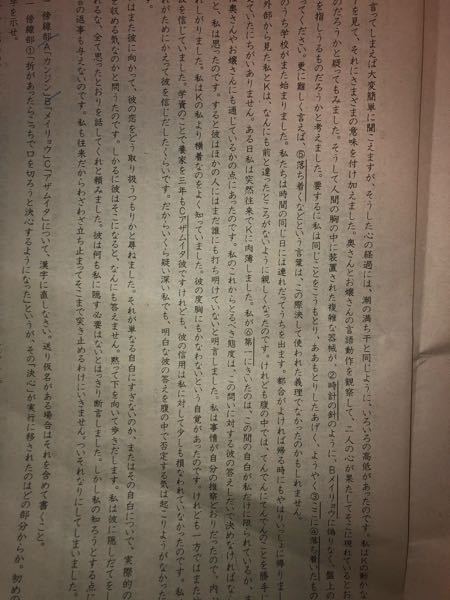 言ってしまえば大変簡単に聞こえますが、そうした心の経過には、潮の満ち干と同じように、いろいろの高低があったのです。私はKの動かな
を見て、それにさまざまの意味を付け加えました。奥さんとお嬢さんの言語動作を観察して、二人の心が果たしてそこに現れているとお
のだろうかと疑ってもみました。そうして人間の胸の中に装置された複雑な器械が、②時計の針のように、Bメイリョウに偽りなく、盤上の
を指しうるものだろうかと考えました。要するに私は同じことをこうもとり、ああもとりしたあげく、ようやく③ここに④落ち着いたもの
ってください。更に難しく言えば、⑤落ち着くなどという言葉は、この際決して使われた義理でなかったのかもしれません。
のうち学校がまた始まりました。私たちは時間の同じ日には連れだってうちを出ます。都合がよければ帰る時にもやはりいっしょに帰りま
外部から見た私とKは、なんにも前と違ったところがないように親しくなったのです。けれども腹の中では、てんでんにてんでんのことを勝手に
いたにちがいありません。ある日私は突然往来でKに肉薄しました。私が⑥第一にきいたのは、この間の自白が私だけに限られているか、ま
奥さんやお嬢さんにも通じているかの点にあったのです。私のこれからとるべき態度は、この問いに対する彼の答えしだいで決めなければな
と、私は思ったのです。すると彼はほかの人にはまだ誰にも打ち明けていないと明言しました。私は事情が自分の推察どおりだったので、内
しがりました。私はKの私より横着なのをよく知っていました。彼の度胸にもかなわないという自覚があったのです。けれども一方ではまた
を信じていました。学資のことで養家を三年もCアザムイタ彼ですけれども、彼の信用は私に対して少しも損なわれていなかったのです。私
がためにかえって彼を信じだしたくらいです。だからいくら疑い深い私でも、明白な彼の答えを腹の中で否定する気は起こりようがなかった
はまた彼に向かって、彼の恋をどう取り扱うつもりかと尋ねました。それが単なる自白にすぎないのか、またはその自白について、実際的の
を収める気なのかと問うたのです。しかるに彼はそこになると、なんにも答えません。黙って下を向いて歩きだします。私は彼に隠しだてを
れるな、全て思ったとおりを話してくれと頼みました。彼は何も私に隠す必要はないとはっきり断言しました。しかし私の知ろうとする点に
の返事も与えないのです。私も往来だからわざわざ立ち止まってそこまで突き止めるわけにいきません。ついそれなりにしてしまいました。
傍線部A「カンジン」B「メイリョウ」C「アザムイタ」について、漢字に直しなさい。送り仮名がある場合はそれを含めて書くこと。
傍線部①「折があったらこっちで口を切ろうと決心するようになった」というが、その「決心」が実行に移されたのはどの部分からか。初めの
字を示せ。